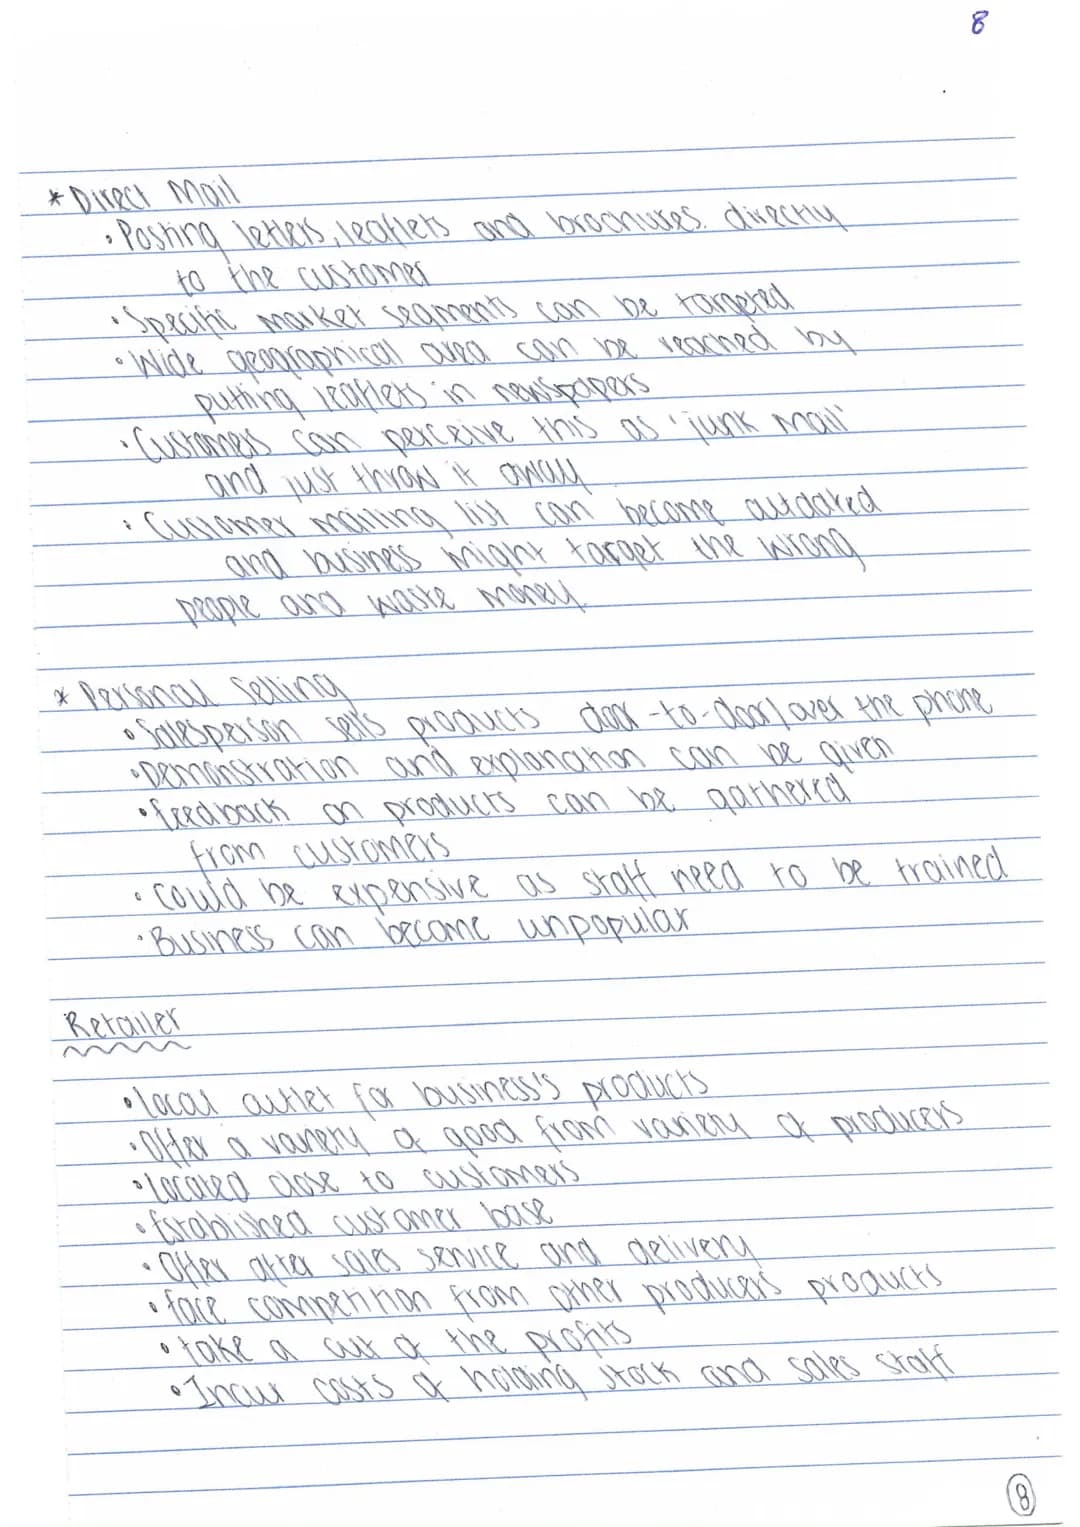 8
* Direct Mail
• Posting letters, leaflets and brochures. directly
to the customer
• Specific market segments can be targeted
• Wide geographical area can be reached by
putting leaflets in newspapers
• Customers can perceive this as 'junk mail'
and just throw it away
• Customer mailing list can become outdated
and business might target the wrong
people and waste money.
* Personal Selling
• Salesperson sells products door-to-door/over the phone
• Demonstration and explanation can be given
• feedback on products can be gathered
from customers
• Could be expensive as staff need to be trained
• Business can become unpopular
Retailer
• Local outlet for business's products
• Offer a variety of good from variety of producers
• Located close to customers
• Established customer base
• Offer after sales service and delivery
• face competition from other producers products
• take a cut of the profits
• Incur costs of holding stock and sales staff
8